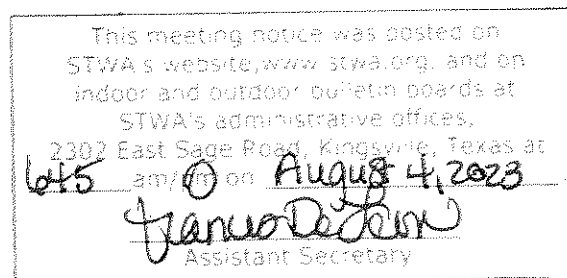 This meeting notice was posted on
STWA's website, www.stwa.org, and on
indoor and outdoor bulletin boards at
STWA's administrative offices,
2302 East Sage Road, Kingsville, Texas at
645 am/pm on August 4, 2023
De Leon
Assistant Secretary